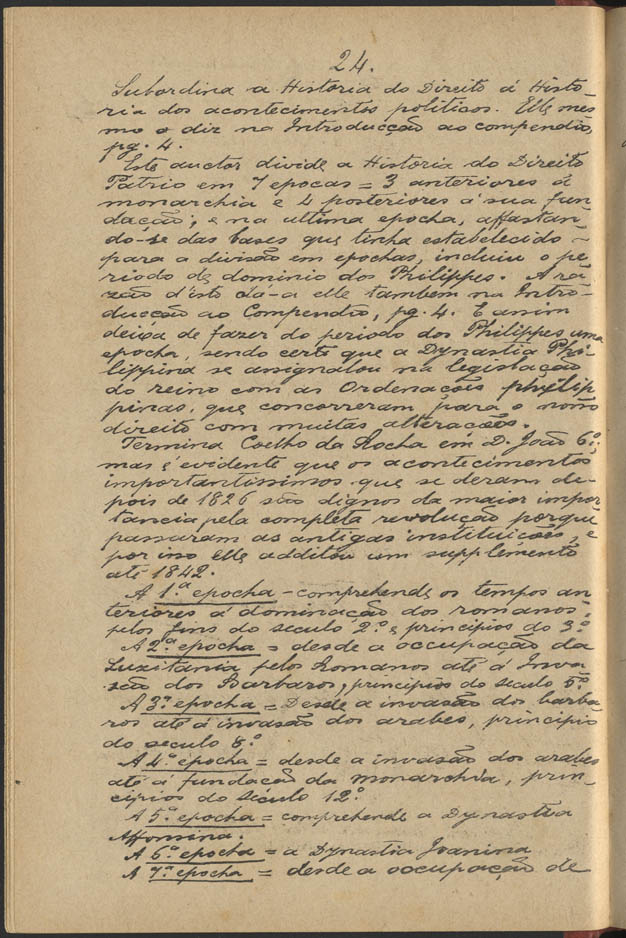 24.
Subordina a Historia do Direito á Histo-
ria dos acontecimentos politicos. Elle mes
mo o diz na Introducção ao compendio,
pg. 4.
Este auctor divide a Historia do Direito
Patrio em 7 epocas = 3 anteriores á
monarchia e 4 posteriores á sua fun
dação; e na ultima epocha, affastan-
do-se das bases que tinha estabelecido -
para a divisão em epochas, incluiu o pe
riodo de dominio dos Philippes. A ra-
zão d'isto dá-a elle tambem na Intro-
ducção ao Compendio, pg. 4. E assim
deixa de fazer do periodo dos Philippes uma
epocha, sendo certo que a Dynastia Phi-
lippina se assignalou na legislação
do reino com as Ordenações philip
pinas, que concorreram para o nosso
direito com muitas alterações.
Termina Coelho da Rocha em D. João 6º;
mas é evidente que os acontecimentos
importantissimos que se deram de-
pois de 1826 são dignos da maior impor
tancia pela completa revolução porque
passaram as antigas instituicões, e
por isso elle additou um supplemento
até 1842.
A 1.ª epocha - comprehende os tempos an
teriores á dominação dos romanos,
pelos fins do seculo 2º e principios do 3º
A 2ª epocha = desde a occupação da
Luzitania pelos Romanos até á Inva
são dos Barbaros, principios do seculo 5º
A 3ª epocha = Desde a invasão dos barba
ros até á invasão dos arabes, principio
do seculo 8º
A 4ª epocha = desde a invasão dos arabes
até á fundação da monarchia, prin-
cipios do século 12º
A 5ª epocha = comprehende a Dynastia
Affonsina.
A 6ª epocha = a Dynastia Joanina
A 7ª epocha = desde a occupação de